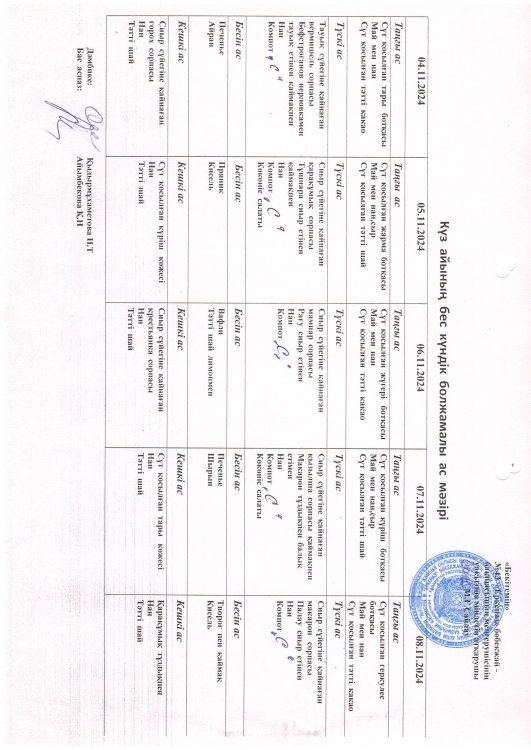 «Бекітемін»
бөбекжай -
Күз айының бес күндік болжамалы ас мәзірі
04.11.2024
Таңғы ас
Сүт қосылған тары ботқасы
Май мен нан
Сүт қосылған тәтті какао
Түскі ас
Тауық сүйегіне қайнаған
вермишель сорпасы
Бефстроганов перловкамен
тауық етінен қаймақпен
Нан
Компот
Бесін ас
Печенье
Айран
Кешкі ас
Сиыр сүйегіне қайнаған
горох сорпасы
Нан
Тәтті шай
05.11.2024
Таңғы ас
Сүт қосылған жарма ботқасы
Май мен нан,сыр
Сүт қосылған тәтті шай
Түскі ас
Сиыр сүйегіне қайнаған
қарақұмық сорпасы
Тұшпара сиыр етінен
қаймақпен
Нан
Компот
Көкөніс салаты
Бесін ас
Пряник
Кисель
Кешкі ас
Сүт қосылған күріш көжесі
Нан
Тәтті шай
06.11.2024
Таңғы ас
Сүт қосылған жүгері ботқасы
Май мен нан
Сүт қосылған тәтті какао
Түскі ас
Сиыр сүйегіне қайнаған
мампар сорпасы
Рагу сиыр етінен
Нан
Компот
Бесін ас
Вафли
Тәтті шай лимонмен
Кешкі ас
Сиыр сүйегіне қайнаған
крестьянка сорпасы
Нан
Тәтті шай
07.11.2024
Таңғы ас
Сүт қосылған күріш ботқасы
Май мен нан,сыр
Сүт қосылған тәтті шай
Түскі ас
Сиыр сүйегіне қайнаған
қызылша сорпасы қаймақпен
Макарон тұздықпен балық
етімен
Нан
Компот
Көкөніс салаты
Бесін ас
Печенье
Шырын
Кешкі ас
Сүт қосылған тары көжесі
Нан
Тәтті шай
08.11.2024
Таңғы ас
Сүт қосылған геркулес
ботқасы
Май мен нан
Сүт қосылған тәтті какао
Түскі ас
Сиыр сүйегіне қайнаған
макарон сорпасы
Палау сиыр етінен
Нан
Компот
Бесін ас
Творог пен қаймақ
Кисель
Кешкі ас
Қарақұмық тұздықпен
Нан
Тәтті шай
Дәмбике: Қыдырмұхаметова Н.Т
Бас аспаз: Айымбекова К.Н